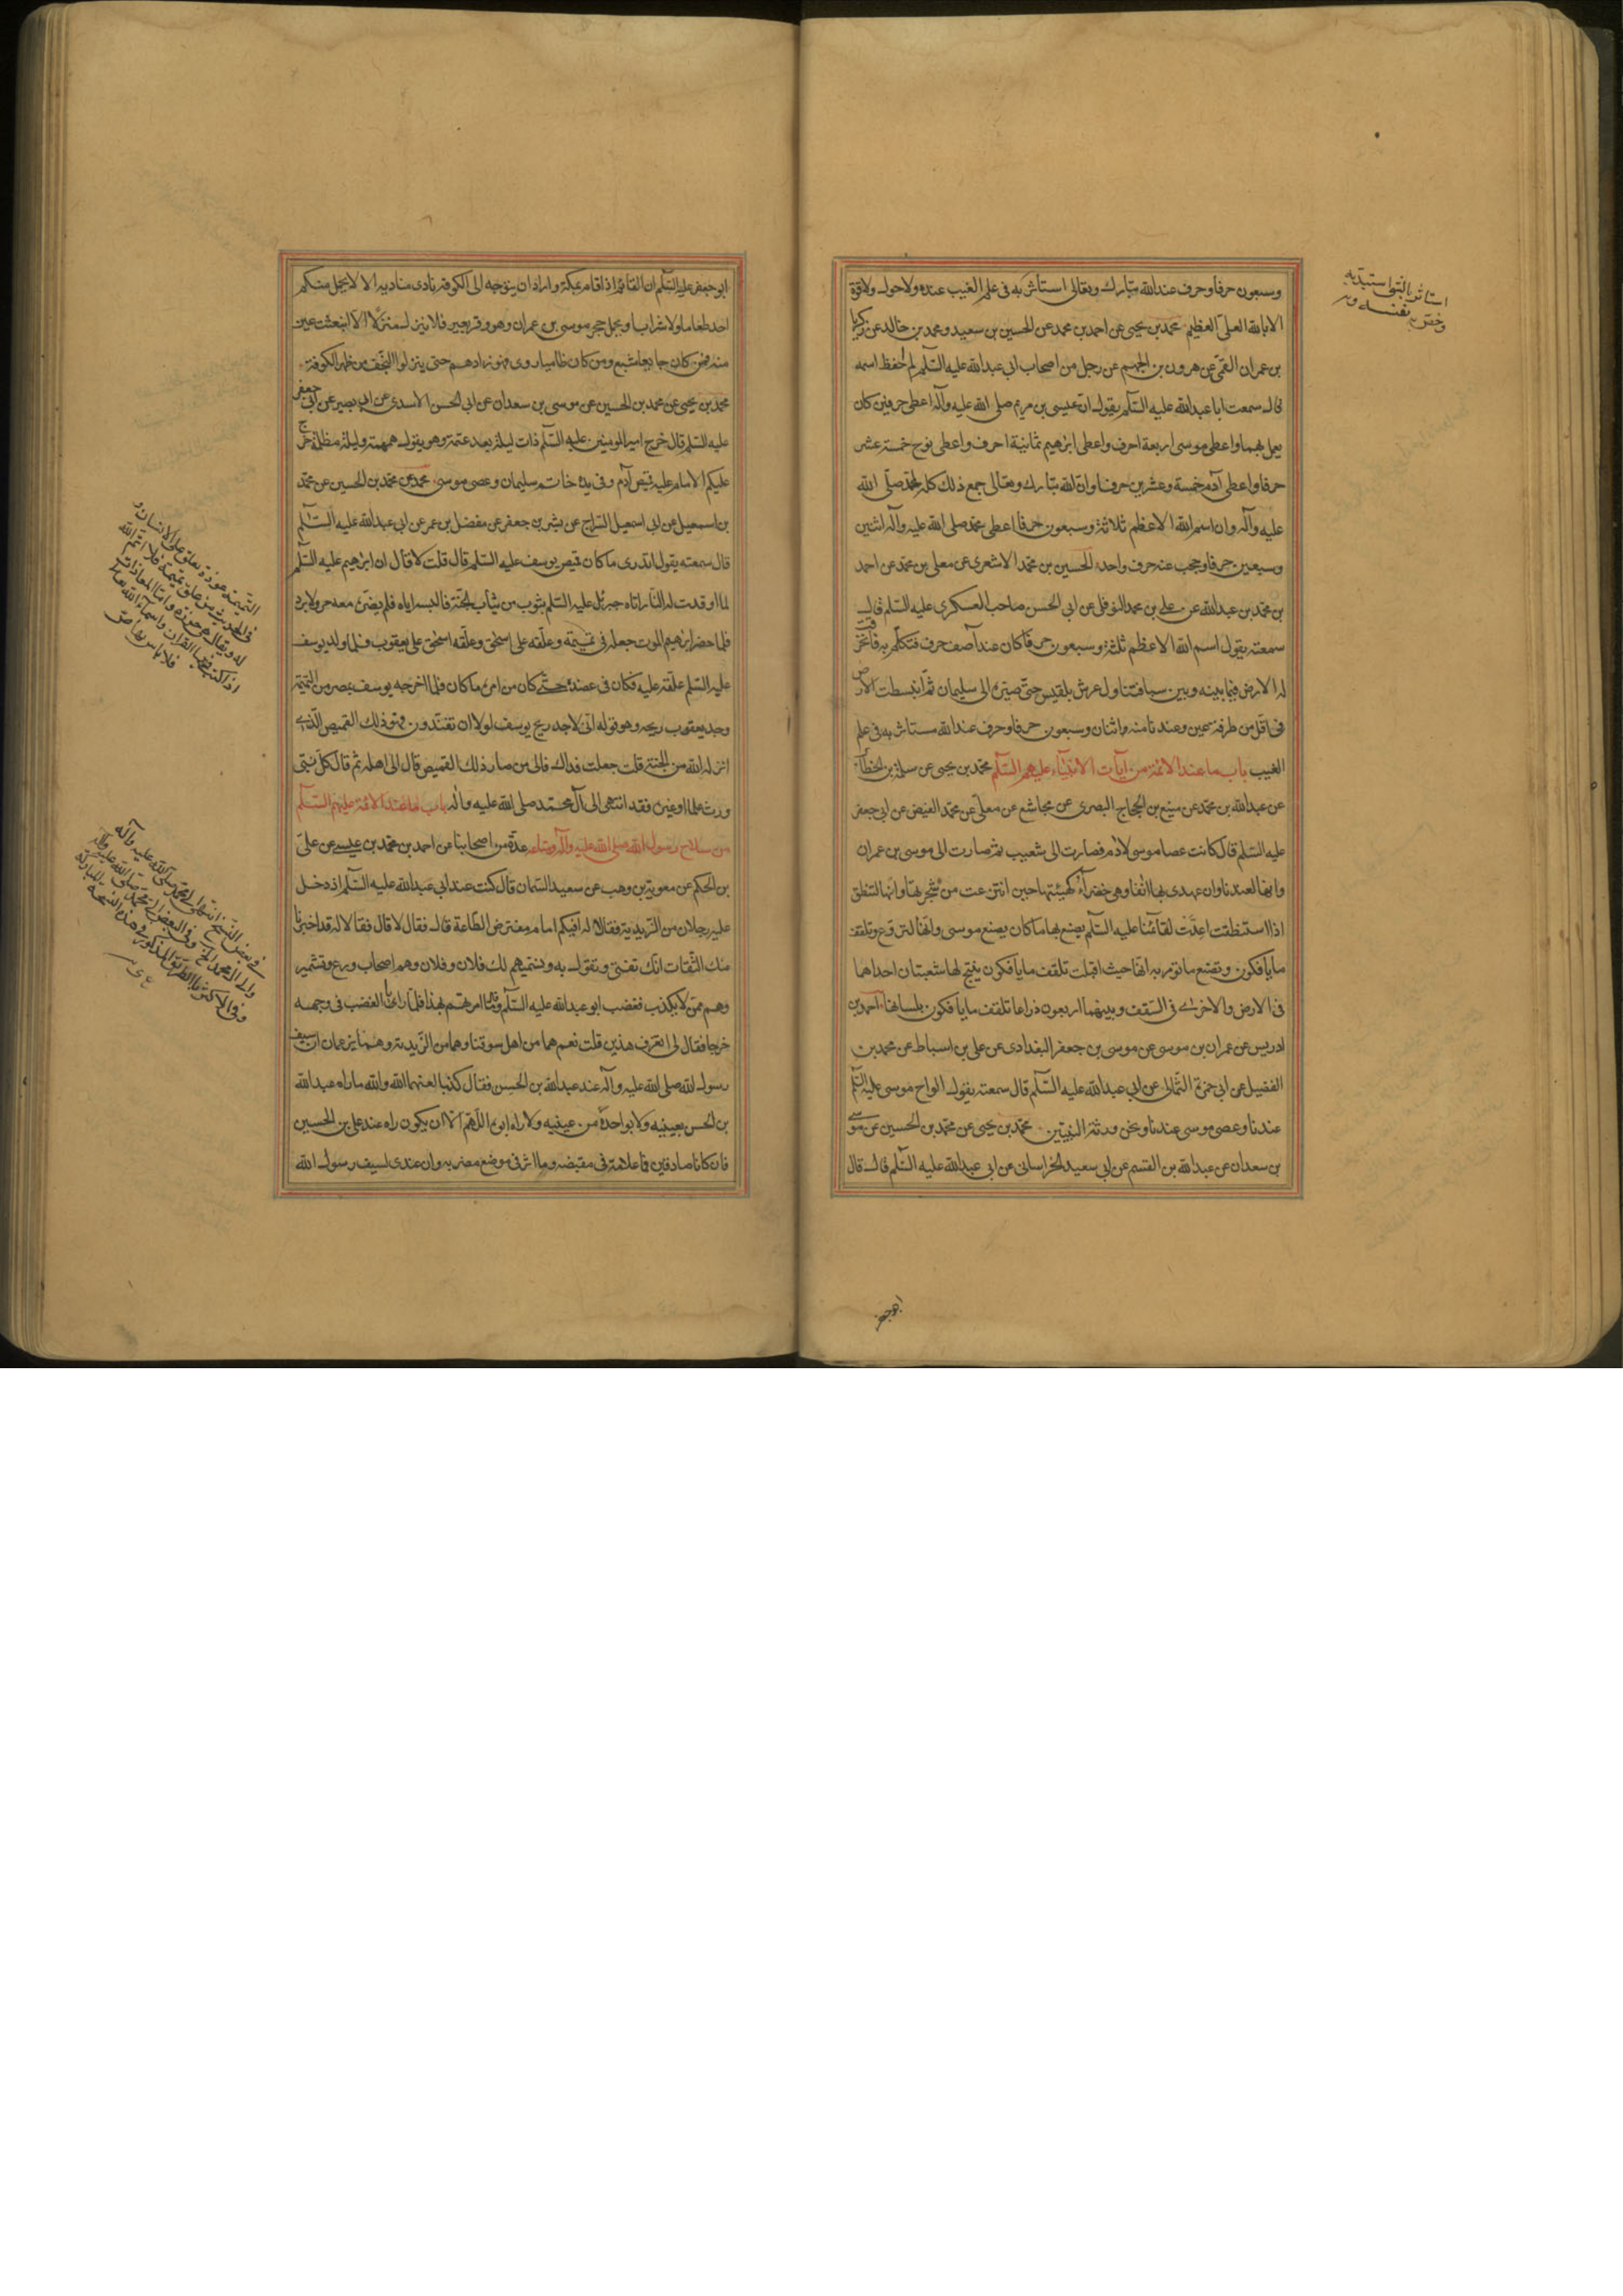 وسبعون حرفا وحرف عند الله تبارك وتعالى استاثر به فى علم الغيب عنده ولا حول ولا قوة
الا بالله العلى العظيم محمد بن يحيى عن احمد بن محمد عن الحسين بن سعيد ومحمد بن خالد عن زكريا
بن عمران القمى عن هرون بن الجهم عن رجل من اصحاب ابى عبد الله عليه السلم لم احفظ اسمه
قال سمعت ابا عبد الله عليه السلم يقول ان عيسى بن مريم صلى الله عليه وآله اعطى حرفين كان
يعمل بهما واعطى موسى اربعة احرف واعطى ابرهيم ثمانية احرف واعطى نوح خمسة عشر
حرفا واعطى آدم خمسة وعشرين حرفا وان الله تبارك وتعالى جمع ذلك كله لمحمد صلى الله
عليه وآله وان اسم الله الاعظم ثلاثة وسبعون حرفا اعطى محمد صلى الله عليه وآله اثنين
وسبعين حرفا وحجب عنه حرف واحد الحسين بن محمد الاشعرى عن معلى بن محمد عن احمد
بن محمد بن عبد الله عن على بن محمد النوفلى عن ابى الحسن صاحب العسكرى عليه السلم قال
سمعته يقول اسم الله الاعظم ثلثة وسبعون حرفا كان عند آصف حرف فتكلم به فانخرقت
له الارض فيما بينه وبين سبا فتناول عرش بلقيس حتى صيره الى سليمان ثم انبسطت الارض
فى اقل من طرفة عين وعندنا منه اثنان وسبعون حرفا وحرف عند الله مستاثر به فى علم
الغيب باب ما عند الائمة من آيات الانبياء عليهم السلم محمد بن يحيى عن سلمة بن الخطاب
عن عبد الله بن محمد عن منيع بن الحجاج البصرى عن مجاشع عن معلى عن محمد الفيض عن ابى جعفر
عليه السلم قال كانت عصا موسى لآدم فصارت الى شعيب ثم صارت الى موسى بن عمران
وانها لعندنا وان عهدى بها انفا وهى خضراء كهيئتها حين انتزعت من شجرتها وانها لتنطق
اذا استنطقت اعدت لقائمنا عليه السلم يصنع بها ما كان يصنع موسى وانها لتروع وتلقف
ما يأفكون وتصنع ما تؤمر به انها حيث اقبلت تلقف ما يأفكون يفتح لها شعبتان احداهما
فى الارض والاخرى فى السقف وبينهما اربعون ذراعا تلقف ما يأفكون بلسانها احمد بن
ادريس عن عمران بن موسى عن موسى بن جعفر البغدادى عن على بن اسباط عن محمد بن
الفضيل عن ابى حمزة الثمالى عن ابى عبد الله عليه السلم قال سمعته يقول الواح موسى عليه السلم
عندنا وعصى موسى عندنا ونحن ورثة النبيين محمد بن يحيى عن محمد بن الحسين عن موسى
بن سعدان عن عبد الله بن القسم عن ابى سعيد الخراسانى عن ابى عبد الله عليه السلم قال قال
ابو جعفر
استاثر بالشى استبد به
وخص به نفسه
ابو جعفر عليه السلم ان القائم اذا قام بمكة واراد ان يتوجه الى الكوفة نادى مناديه الا لا يحمل منكم
احد طعاما ولا شرابا ويحمل حجر موسى بن عمران وهو وقر بعير فلا ينزل منزلا الا انبعثت عين
منه فمن كان جايعا شبع ومن كان ظاميا روى فهو زادهم حتى ينزلوا النجف من ظهر الكوفة
محمد بن يحيى عن محمد بن الحسين عن موسى بن سعدان عن ابى الحسن الاسدى عن ابى بصير عن ابى جعفر
عليه السلم قال خرج امير المومنين عليه السلم ذات ليلة بعد عتمة وهو يقول همهمة وليلة مظلمة خرج
عليكم الامام عليه قميص آدم وفى يده خاتم سليمان وعصى موسى محمد عن محمد بن الحسين عن محمد
بن اسمعيل عن ابى اسمعيل السراج عن بشر بن جعفر عن مفضل بن عمر عن ابى عبد الله عليه السلم
قال سمعته يقول اتدرى ما كان قميص يوسف عليه السلم قال قلت لا قال ان ابرهيم عليه السلم
لما اوقدت له النار اتاه جبرئل عليه السلم بثوب من ثياب الجنة فالبسه اياه فلم يضره معه حر ولا برد
فلما حضر ابرهيم الموت جعله فى تميمة وعلقه على اسحق وعلقه اسحق على يعقوب فلما ولد يوسف
عليه السلم علقه عليه فكان فى عضده حتى كان من امره ما كان فلما اخرجه يوسف بمصر من التميمة
وجد يعقوب ريحه وهو قوله انى لاجد ريح يوسف لولا ان تفندون فهو ذلك القميص الذى
انزله الله من الجنة قلت جعلت فداك فالى من صار ذلك القميص قال الى اهله ثم قال كل نبى
ورث علما او غيره فقد انتهى الى آل محمد صلى الله عليه وآله باب ما عند الائمة عليهم السلم
من سلاح رسول الله صلى الله عليه وآله ومتاعه عدة من اصحابنا عن احمد بن محمد بن عيسى عن على
بن الحكم عن معوية بن وهب عن سعيد السمان قال كنت عند ابى عبد الله عليه السلم اذ دخل
عليه رجلان من الزيدية فقالا له افيكم امام مفترض الطاعة قال فقال لا قال فقالا له قد اخبرنا
عنك الثقات انك تفتى وتقول به ونسميهم لك فلان وفلان وهم اصحاب ورع وتشمير
وهم ممن لا يكذب فغضب ابو عبد الله عليه السلم وقال ما امرتهم بهذا فلما رايا الغضب فى وجهه
خرجا فقال لى اتعرف هذين قلت نعم هما من اهل سوقنا وهما من الزيدية وهما يزعمان ان سيف
رسول الله صلى الله عليه وآله عند عبد الله بن الحسن فقال كذبا لعنهما الله والله ما راه عبد الله
بن الحسن بعينيه ولا بواحدة من عينيه ولا راه ابوه اللهم الا ان يكون راه عند على بن الحسين
فان كانا صادقين فما علامة فى مقبضه وما اثر فى موضع مضربه وان عندى لسيف رسول الله
التميمة عوذة تعلق على الانسان و
فى الحديث من علق تميمة فلا اتم الله
له ويقال هى خرزة واما المعاذات
اذا كتب فيها القران واسماء الله تعالى
فلا باس بها ص
فى بعض النسخ انتهى الى محمد صلى الله عليه وآله